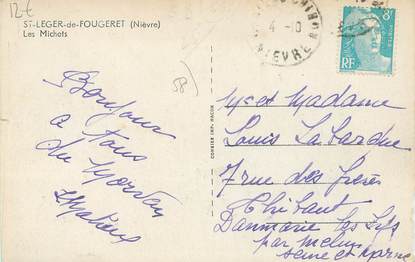 12 €
ST-LEGER-de-FOUGERET (Nièvre)
Les Michots
58
Bonjour
a tous
du Morvan
COMBIER IMP. MACON
4 -10
NIEVRE
8F
POSTES
RF
Mr et Madame
Louis Labarde
7 rue des frères
Thibaut
Dammarie les Lys
par Melun
seine et Marne